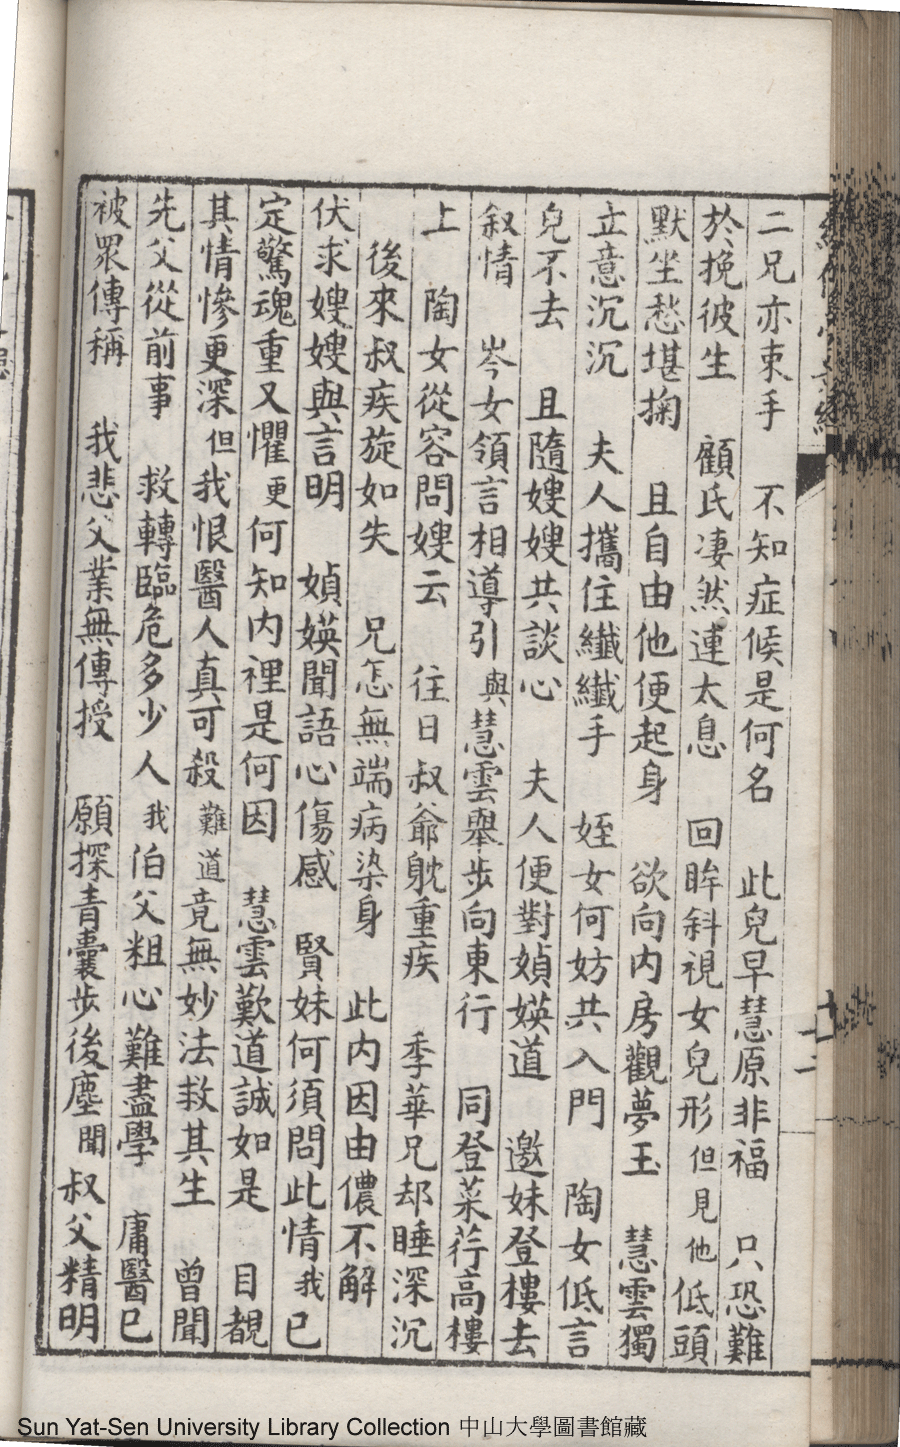 二兄亦束手　不知症候是何名　此兒早慧原非福　只恐難
於挽彼生　顧氏淒然連太息　回眸斜視女兒形但見他低頭
默坐愁堪掬　且自由他便起身　欲向內房觀夢玉　慧雲獨
立意沉沉　夫人攜住纖纖手　姪女何妨共入門　陶女低言
兒不去　且隨嫂嫂共談心　夫人便對媜媖道　邀妹登樓去
叙情　岑女領言相導引與慧雲舉步向東行　同登菜荇高樓
上　陶女從容問嫂云　往日叔爺躭重疾　季華兄却睡深沉
後來叔疾旋如失　兄怎無端病染身　此內因由儂不解
伏求嫂嫂與言明　媜媖聞語心傷感　賢妹何須問此情我已
定驚魂重又懼更何知內裡是何因　慧雲歎道誠如是　目覩
其情慘更深但我恨醫人真可殺難道竟無妙法救其生　曾聞
先父從前事　救轉臨危多少人我伯父粗心難盡學　庸醫已
被眾傳稱　我悲父業無傳授　願探青囊步後塵聞叔父精明
十二
Sun Yat-Sen University Library Collection 中山大學圖書館藏